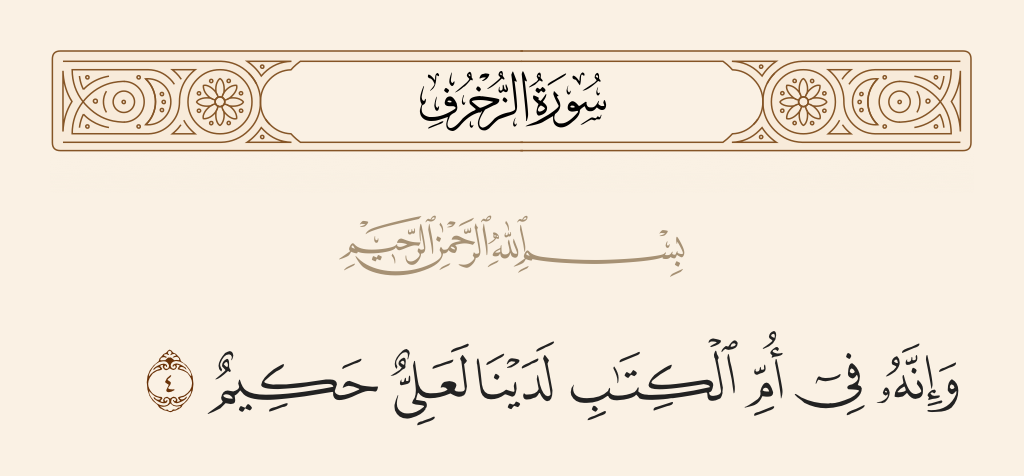 سُورَةُ الزُّخْرُفِ
بِسْمِ ٱللَّهِ ٱلرَّحْمَٰنِ ٱلرَّحِيمِ
وَإِنَّهُۥ فِىٓ أُمِّ ٱلْكِتَٰبِ لَدَيْنَا لَعَلِىٌّ حَكِيمٌ ٤